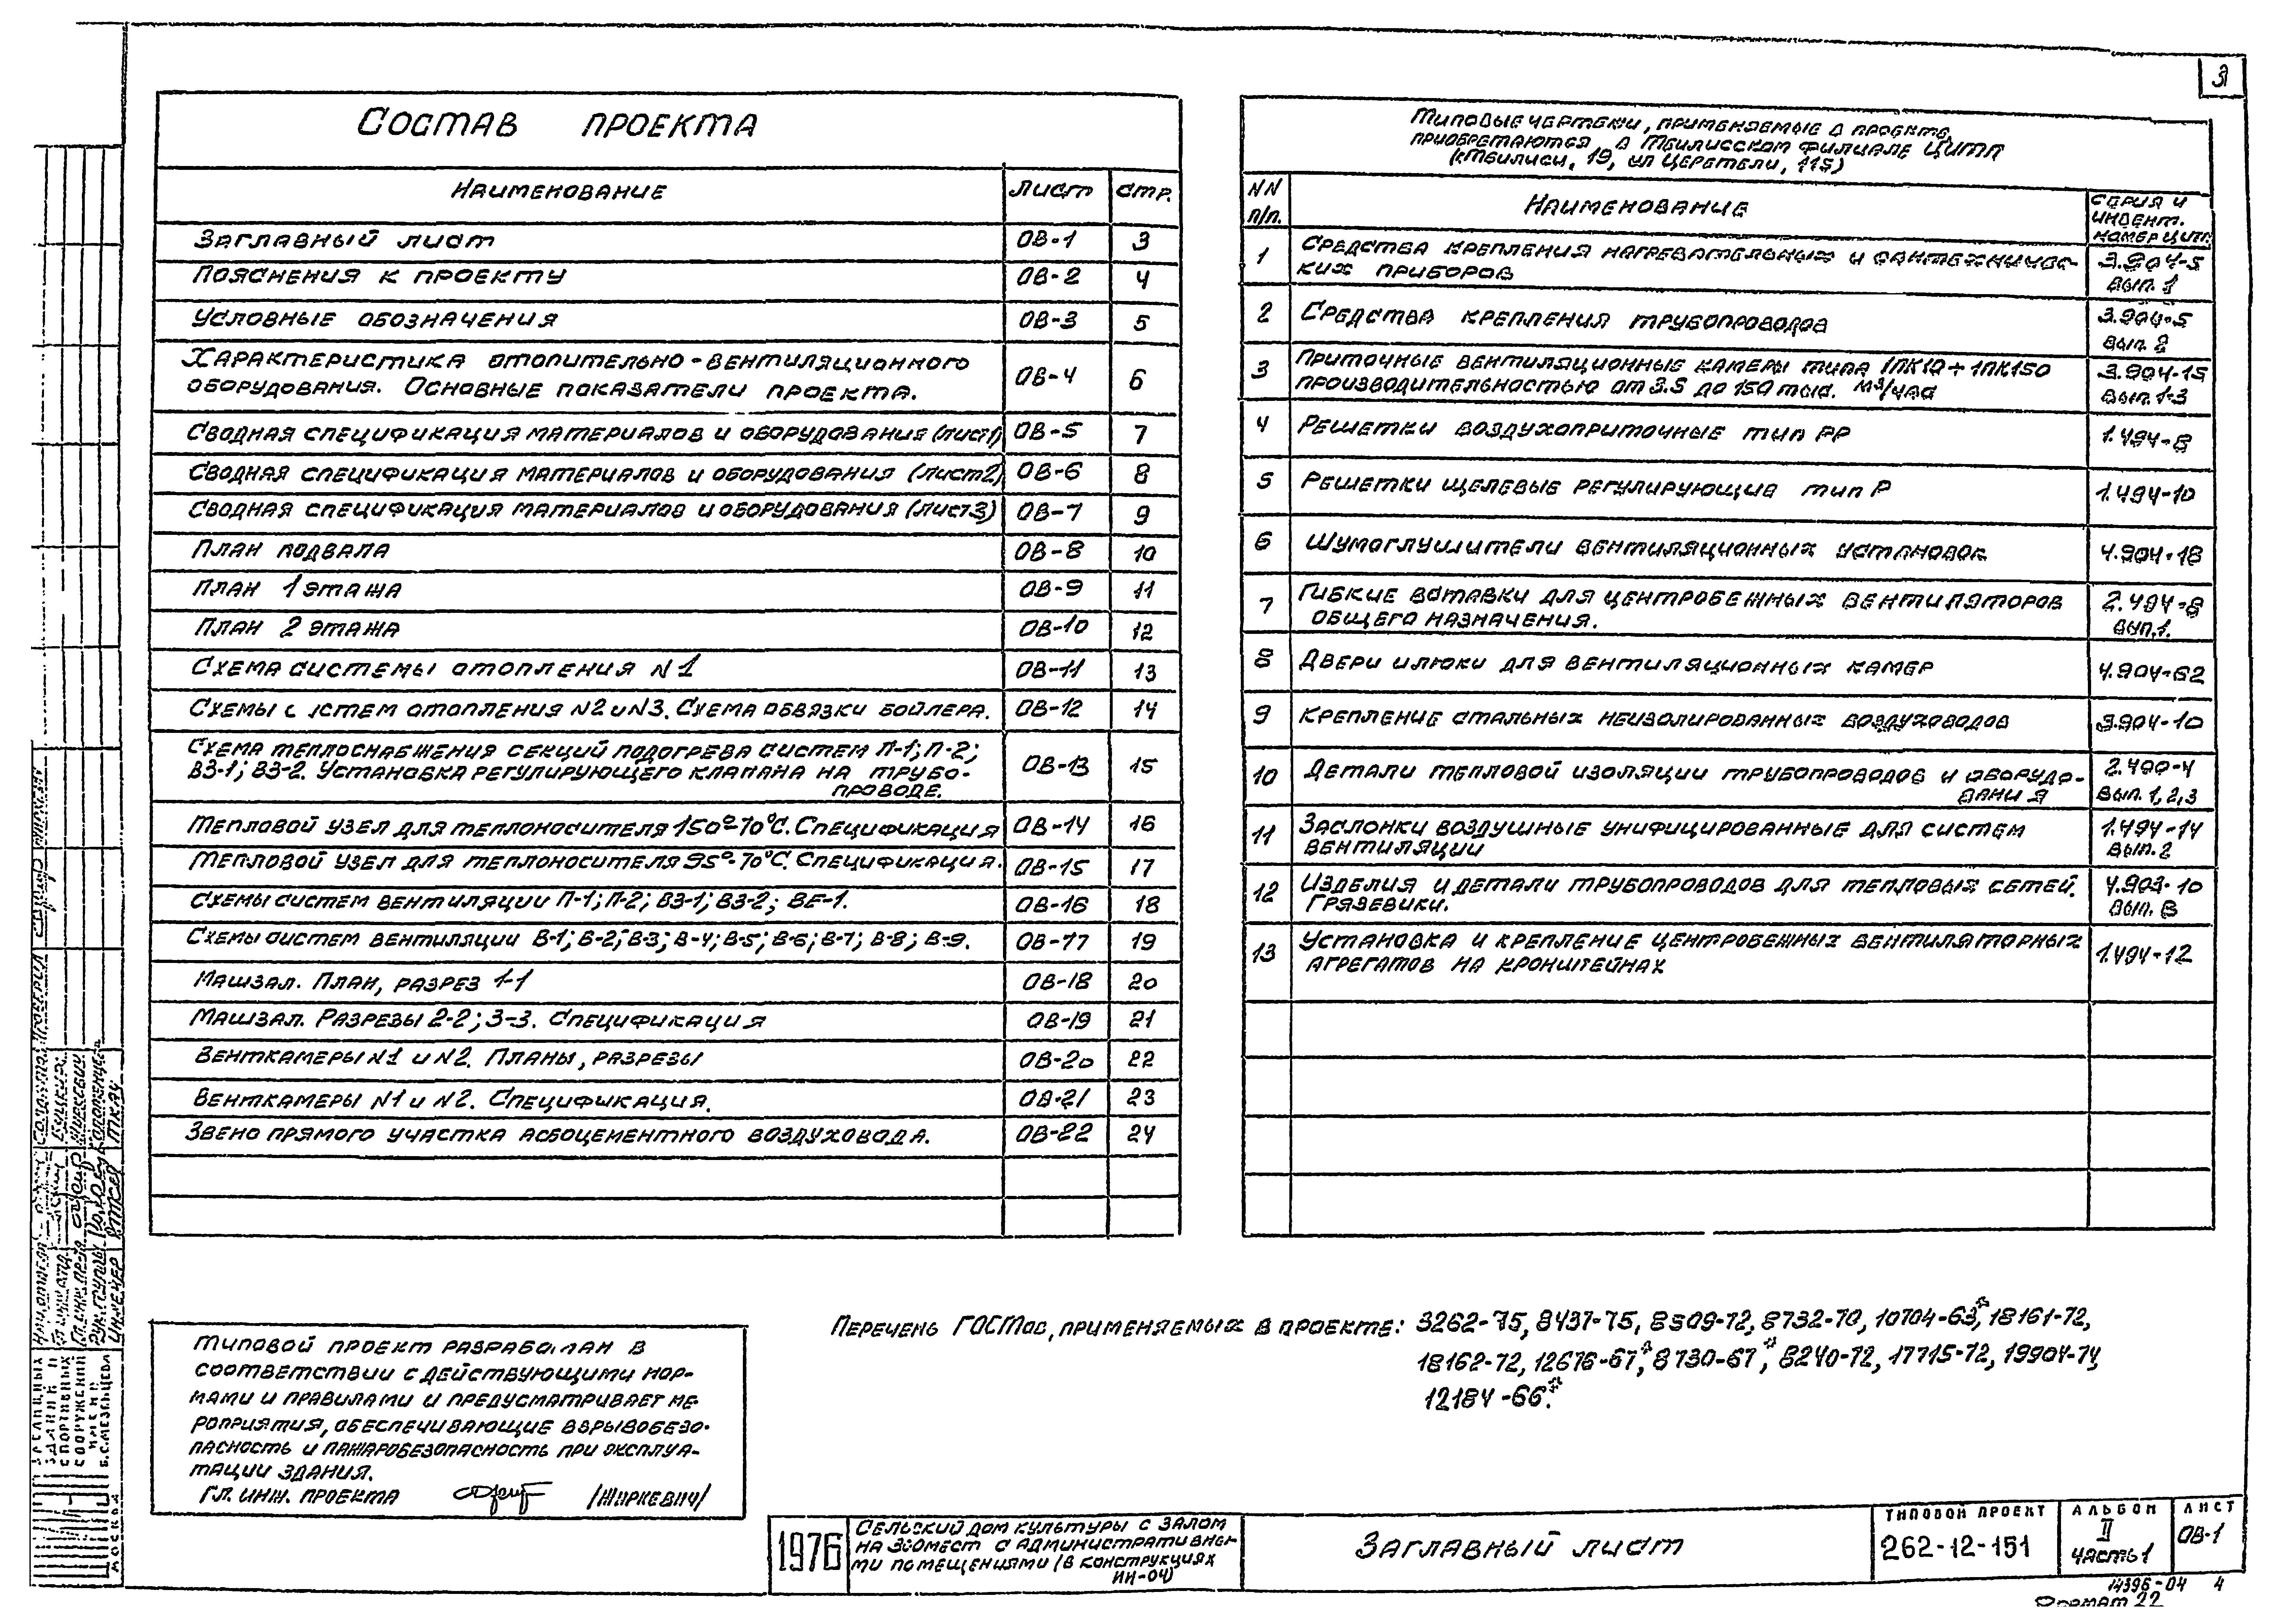 3
Состав проекта
Наименование Лист Стр.
Заглавный лист ОВ-1 3
Пояснения к проекту ОВ-2 4
Условные обозначения ОВ-3 5
Характеристика отопительно-вентиляционного
оборудования. Основные показатели проекта. ОВ-4 6
Сводная спецификация материалов и оборудования (лист1) ОВ-5 7
Сводная спецификация материалов и оборудования (лист2) ОВ-6 8
Сводная спецификация материалов и оборудования (лист3) ОВ-7 9
План подвала ОВ-8 10
План 1 этажа ОВ-9 11
План 2 этажа ОВ-10 12
Схема системы отопления N1 ОВ-11 13
Схемы систем отопления N2 и N3. Схема обвязки бойлера. ОВ-12 14
Схема теплоснабжения секций подогрева систем П-1; П-2;
ВЗ-1; ВЗ-2. Установка регулирующего клапана на трубо-
проводе. ОВ-13 15
Тепловой узел для теплоносителя 150°-70°С. Спецификация ОВ-14 16
Тепловой узел для теплоносителя 95°-70°С. Спецификация. ОВ-15 17
Схемы систем вентиляции П-1; П-2; ВЗ-1; ВЗ-2; ВЕ-1. ОВ-16 18
Схемы систем вентиляции В-1; В-2; В-3; В-4; В-5; В-6; В-7; В-8; В-9. ОВ-17 19
Машзал. План, разрез 1-1 ОВ-18 20
Машзал. Разрезы 2-2; 3-3. Спецификация ОВ-19 21
Венткамеры N1 и N2. Планы, разрезы ОВ-20 22
Венткамеры N1 и N2. Спецификация. ОВ-21 23
Звено прямого участка асбоцементного воздуховода. ОВ-22 24
Типовые чертежи, применяемые в проекте,
приобретаются в Тбилисском филиале ЦИТП
(г.Тбилиси, 19, ул Церетели, 115)
NN
п/п. Наименование Серия и
инвент.
номер ЦИТП
1 Средства крепления нагревательных и сантехничес-
ких приборов 3.904-5
вып. 1
2 Средства крепления трубопроводов 3.904-5
вып. 2
3 Приточные вентиляционные камеры типа 1ПК10÷1ПК150
производительностью от 3.5 до 150 тыс. м³/час 3.904-15
вып. 1-3
4 Решетки воздухоприточные тип РР 1.494-8
5 Решетки щелевые регулирующие тип Р 1.494-10
6 Шумоглушители вентиляционных установок 4.904-18
7 Гибкие вставки для центробежных вентиляторов
общего назначения. 2.494-8
вып.1.
8 Двери и люки для вентиляционных камер 4.904-62
9 Крепление стальных неизолированных воздуховодов 3.904-10
10 Детали тепловой изоляции трубопроводов и оборудо-
вания 2.400-4
вып. 1,2,3
11 Заслонки воздушные унифицированные для систем
вентиляции 1.494-14
вып.2
12 Изделия и детали трубопроводов для тепловых сетей.
Грязевики. 4.903-10
вып. 8
13 Установка и крепление центробежных вентиляторных
агрегатов на кронштейнах 1.494-12
Перечень ГОСТов, применяемых в проекте: 3262-75, 8437-75, 8509-72, 8732-70, 10704-63*, 18161-72,
18162-72, 12676-67*, 8730-67*, 8240-72, 17715-72, 19904-74,
12184-66*.
Типовой проект разработан в
соответствии с действующими нор-
мами и правилами и предусматривает ме-
роприятия, обеспечивающие взрывобезо-
пасность и пожаробезопасность при эксплуа-
тации здания.
Гл. инж. проекта /Жиркевич/
1976
Сельский дом культуры с залом
на 300 мест с административны-
ми помещениями (в конструкциях
ИИ-04)
Заглавный лист
Типовой проект
262-12-151
Альбом
II
часть 1
Лист
ОВ-1
14396-04 4
Формат 22
зрелищных
зданий и
спортивных
сооружений
имени
Б.С.Мезенцева
Москва
Рук.группы
Инженер Ткач
Проверил